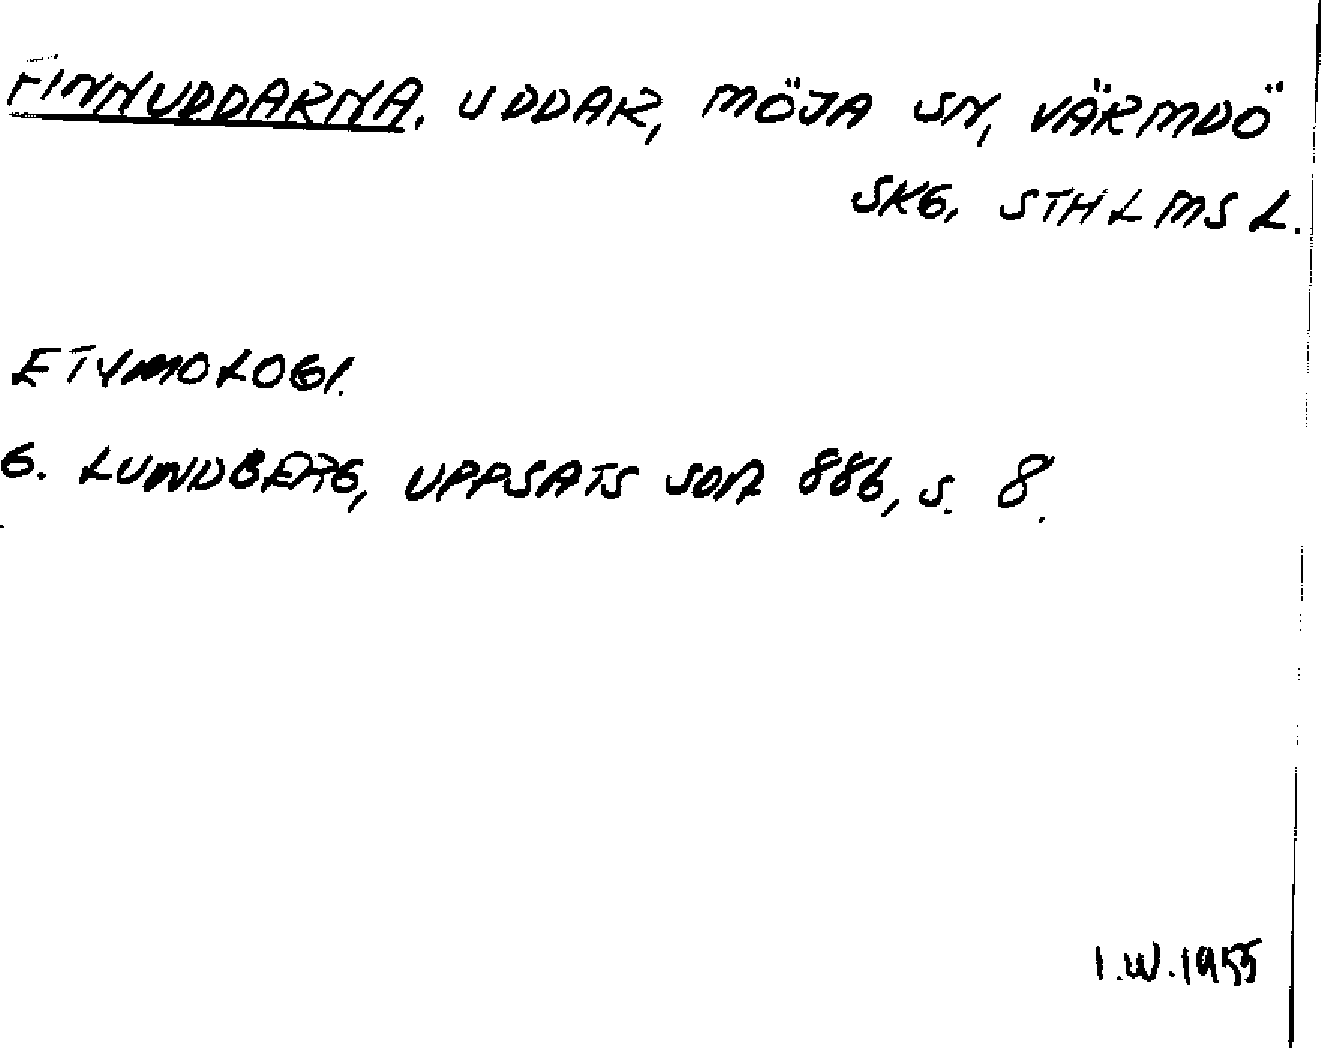 FINNUDDARNA. UDDAR, MÖJA SN, VÄRMDÖ
SKG, STHLMS L.
ETYMOLOGI.
G. LUNDBERG, UPPSATS SOA 886, S. 8.
I.W.1955